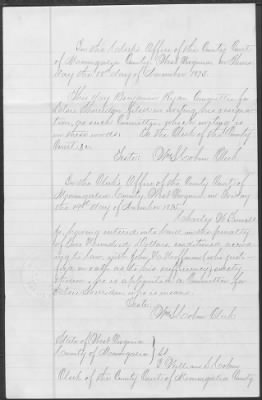 In the Clerk's Office of the County Court
of Monongalia County, West Virginia on Thurs
day the 18th day of November 187
This day Benjamin Ryan Committee for
Sheridan filed in writing his resigna-
tion, as such Committee, which writing is
in these words: To the Clerk of the County
Court &c.
Teste: Wm S Cobun Clerk
In the Clerk's Office of the County Court of
Monongalia County, West Virginia on
the day of November 187
Charley H
having entered into bond in the penalty
of Hundred Dollars conditioned accord
ing to law, with John W. Hoffman (who just-
ified on oath as to his sufficiency) surety
thereon, he is appointed a Committee for
Sheridan
Teste:
Wm S Cobun Clerk
State of West Virginia
County of Monongalia } ss.
I William S. Cobun
Clerk of the County Court of Monongalia County